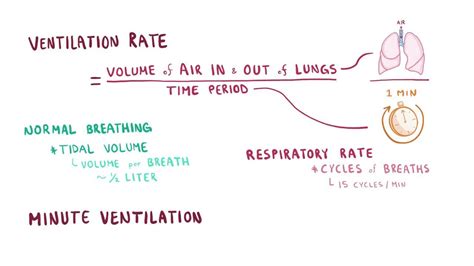 VENTILATION RATE
AIR
= VOLUME of AIR IN & OUT of LUNGS
TIME PERIOD
1 MIN
NORMAL BREATHING
* TIDAL VOLUME
↳ VOLUME per BREATH
~ 1/2 LITER
RESPIRATORY RATE
* CYCLES of BREATHS
↳ 15 CYCLES/MIN
MINUTE VENTILATION